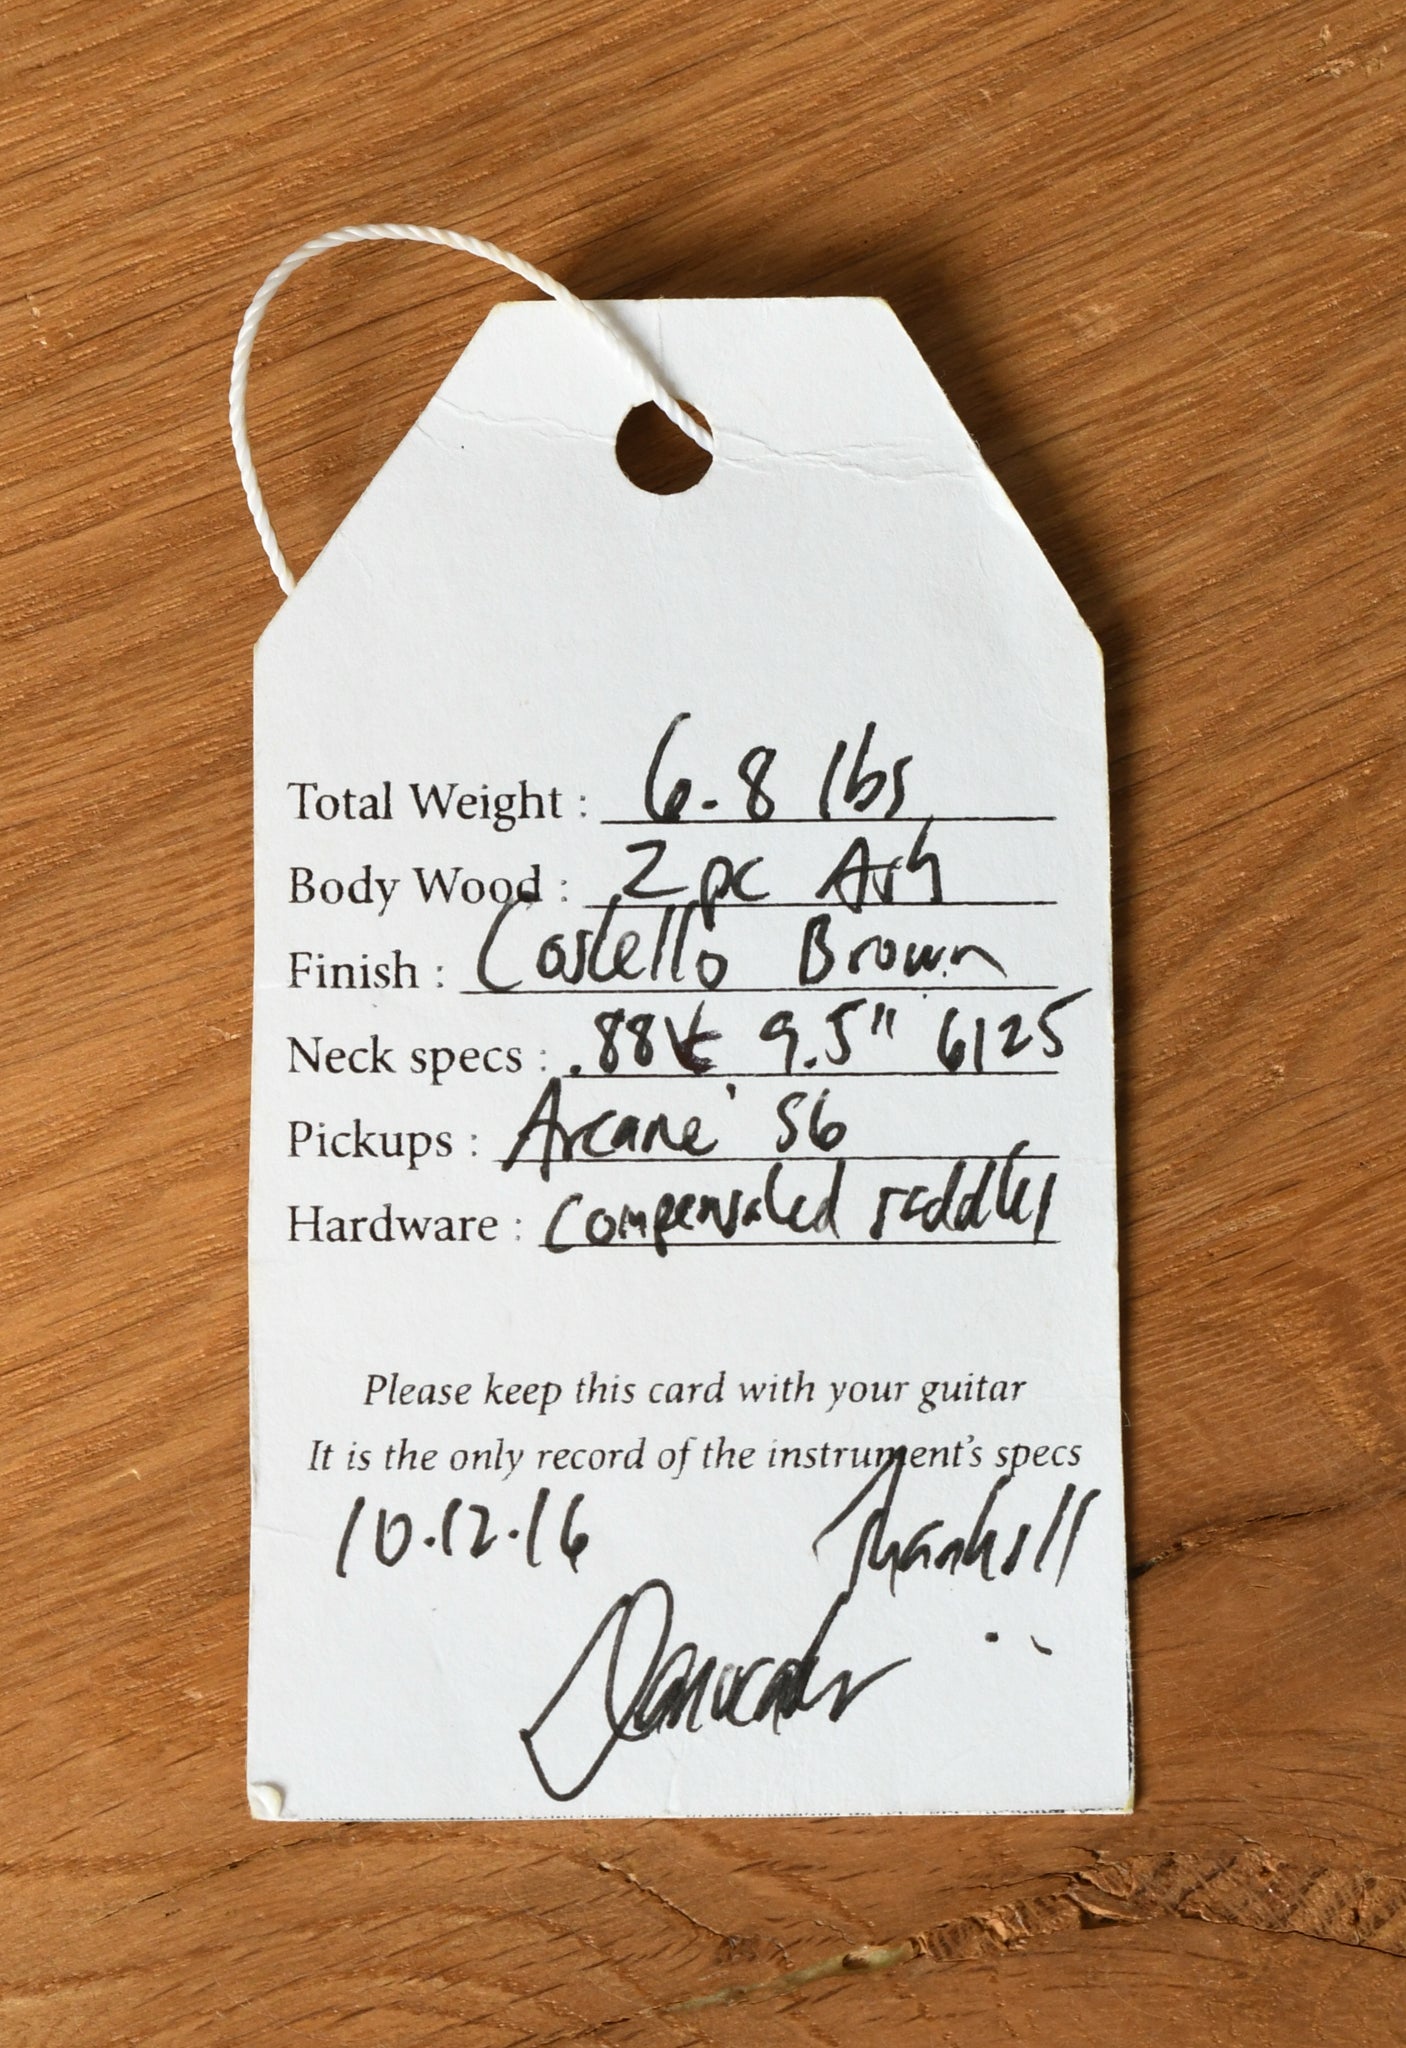 Total Weight : 6.8 lbs
Body Wood : 2pc Ash
Finish : Costello Brown
Neck specs : .88 9.5" 6125
Pickups : Arcane '56
Hardware : Compensated saddles
Please keep this card with your guitar
It is the only record of the instrument's specs
10.12.16 Thanks!!